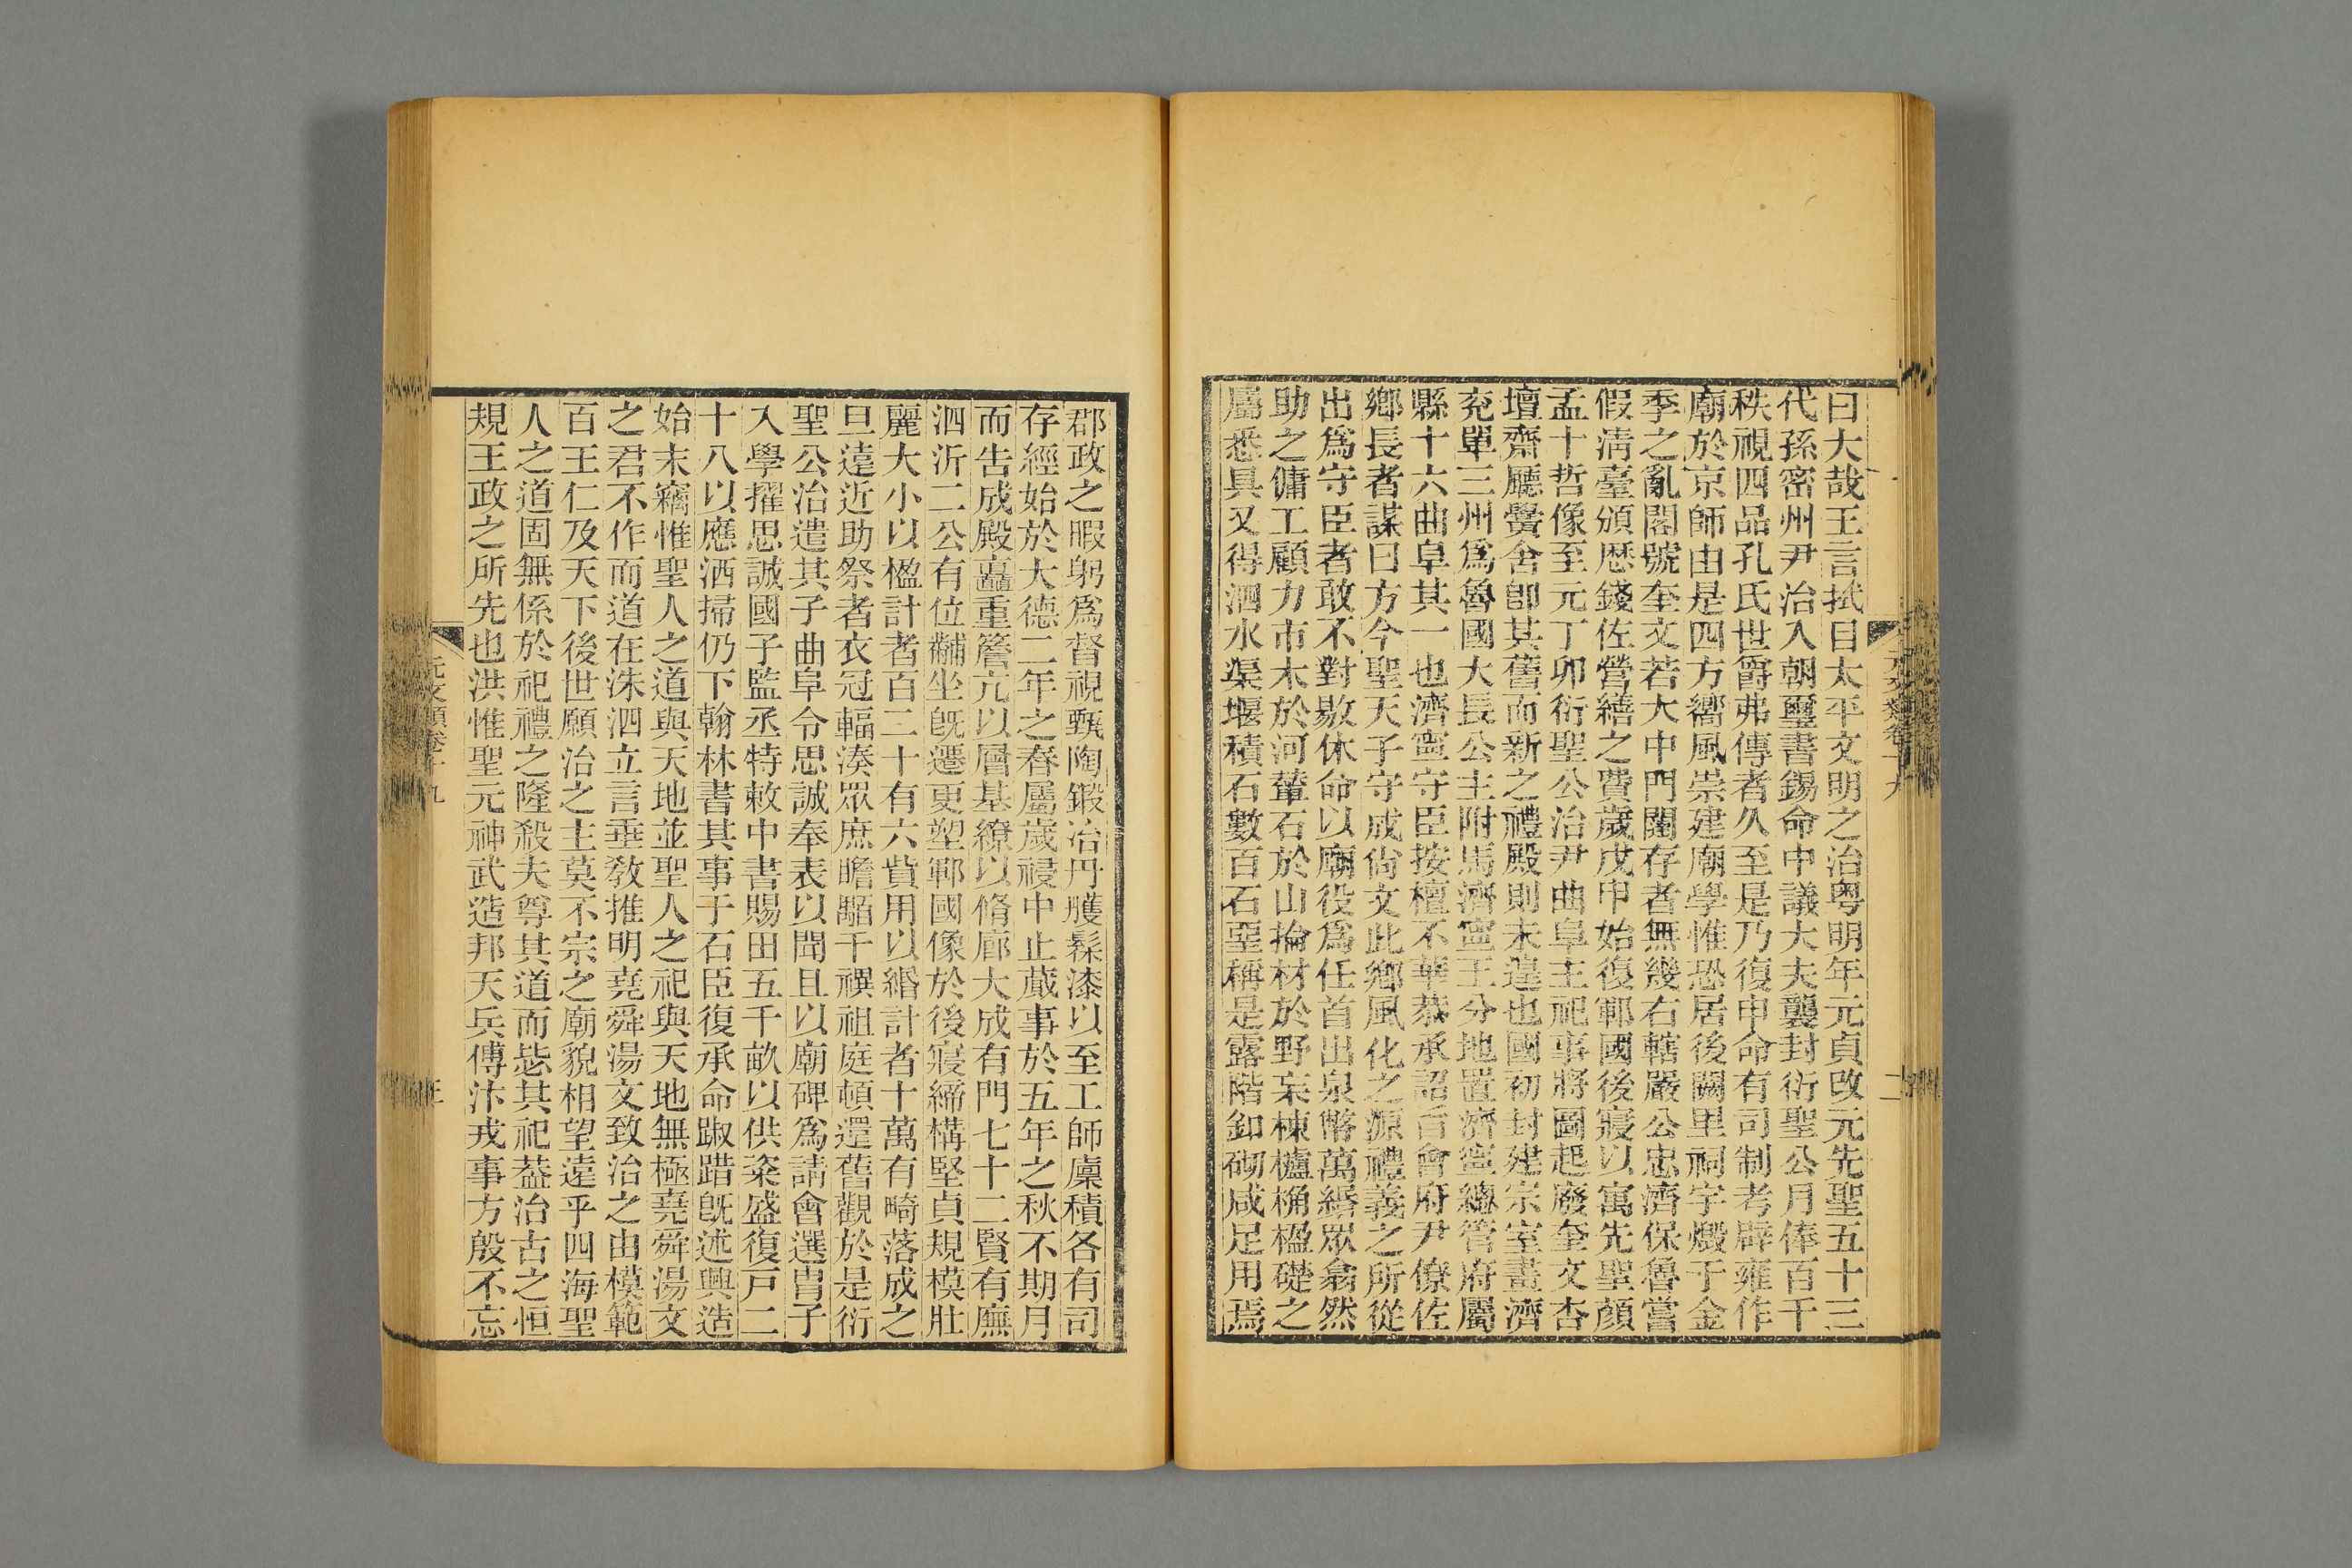 曰大哉王言拭目太平文明之治粤明年元貞改元先聖五十三
代孫密州尹治入朝璽書錫命中議大夫襲封衍聖公月俸百千
秩視四品孔氏世爵弗傳者久至是乃復申命有司制考辟雍作
廟於京師由是四方嚮風崇建廟學惟恐居後闕里祠宇燬于金
季之亂閣號奎文若大中門闥存者無幾右轄嚴公忠濟保魯嘗
假淸臺頒歴錢佐營繕之費歲戊申始復鄆國後寢以寓先聖顔
孟十哲像至元丁卯衍聖公治尹曲阜主祀事將圖起廢奎文杏
壇齋廳黌舍卽其舊而新之禮殿則未遑也國初封建宗室畫濟
兖單三州爲魯國大長公主附馬濟寧王分地置濟寧總管府屬
縣十六曲阜其一也濟寧守臣按檀不華恭承詔旨會府尹僚佐
鄕長者謀曰方今聖天子守成尙文此鄕風化之源禮義之所從
出爲守臣者敢不對敭休命以廟役爲任首出泉幣萬緡眾翕然
助之傭工顧力市木於河輦石於山掄材於野杗棟櫨桷楹礎之
屬悉具又得泗水渠堰積石數百石堊稱是露階釦砌咸足用焉
元文類卷十九
二
郡政之暇躬爲督視甄陶鍛冶丹雘髹漆以至工師廩積各有司
存經始於大德二年之春屬歲祲中止蕆事於五年之秋不期月
而告成殿矗重簷亢以層基繚以脩廊大成有門七十二賢有廡
泗沂二公有位黼坐旣遷更塑鄆國像於後寢締構堅貞規模壯
麗大小以楹計者百二十有六貲用以緡計者十萬有畸落成之
旦遠近助祭者衣冠輻湊眾庶瞻𩢾千禩祖庭頓還舊觀於是衍
聖公治遣其子曲阜令思誠奉表以聞且以廟碑爲請會選冑子
入學擢思誠國子監丞特敕中書賜田五千畝以供粢盛復戸二
十八以應洒掃仍下翰林書其事于石臣復承命踧踖旣述興造
始末竊惟聖人之道與天地並聖人之祀與天地無極堯舜湯文
之君不作而道在洙泗立言垂敎推明堯舜湯文致治之由模範
百王仁及天下後世願治之主莫不宗之廟貌相望遠乎四海聖
人之道固無係於祀禮之隆殺夫尊其道而毖其祀葢治古之恒
規王政之所先也洪惟聖元神武造邦天兵傅汴戎事方殷不忘
元文類卷十九